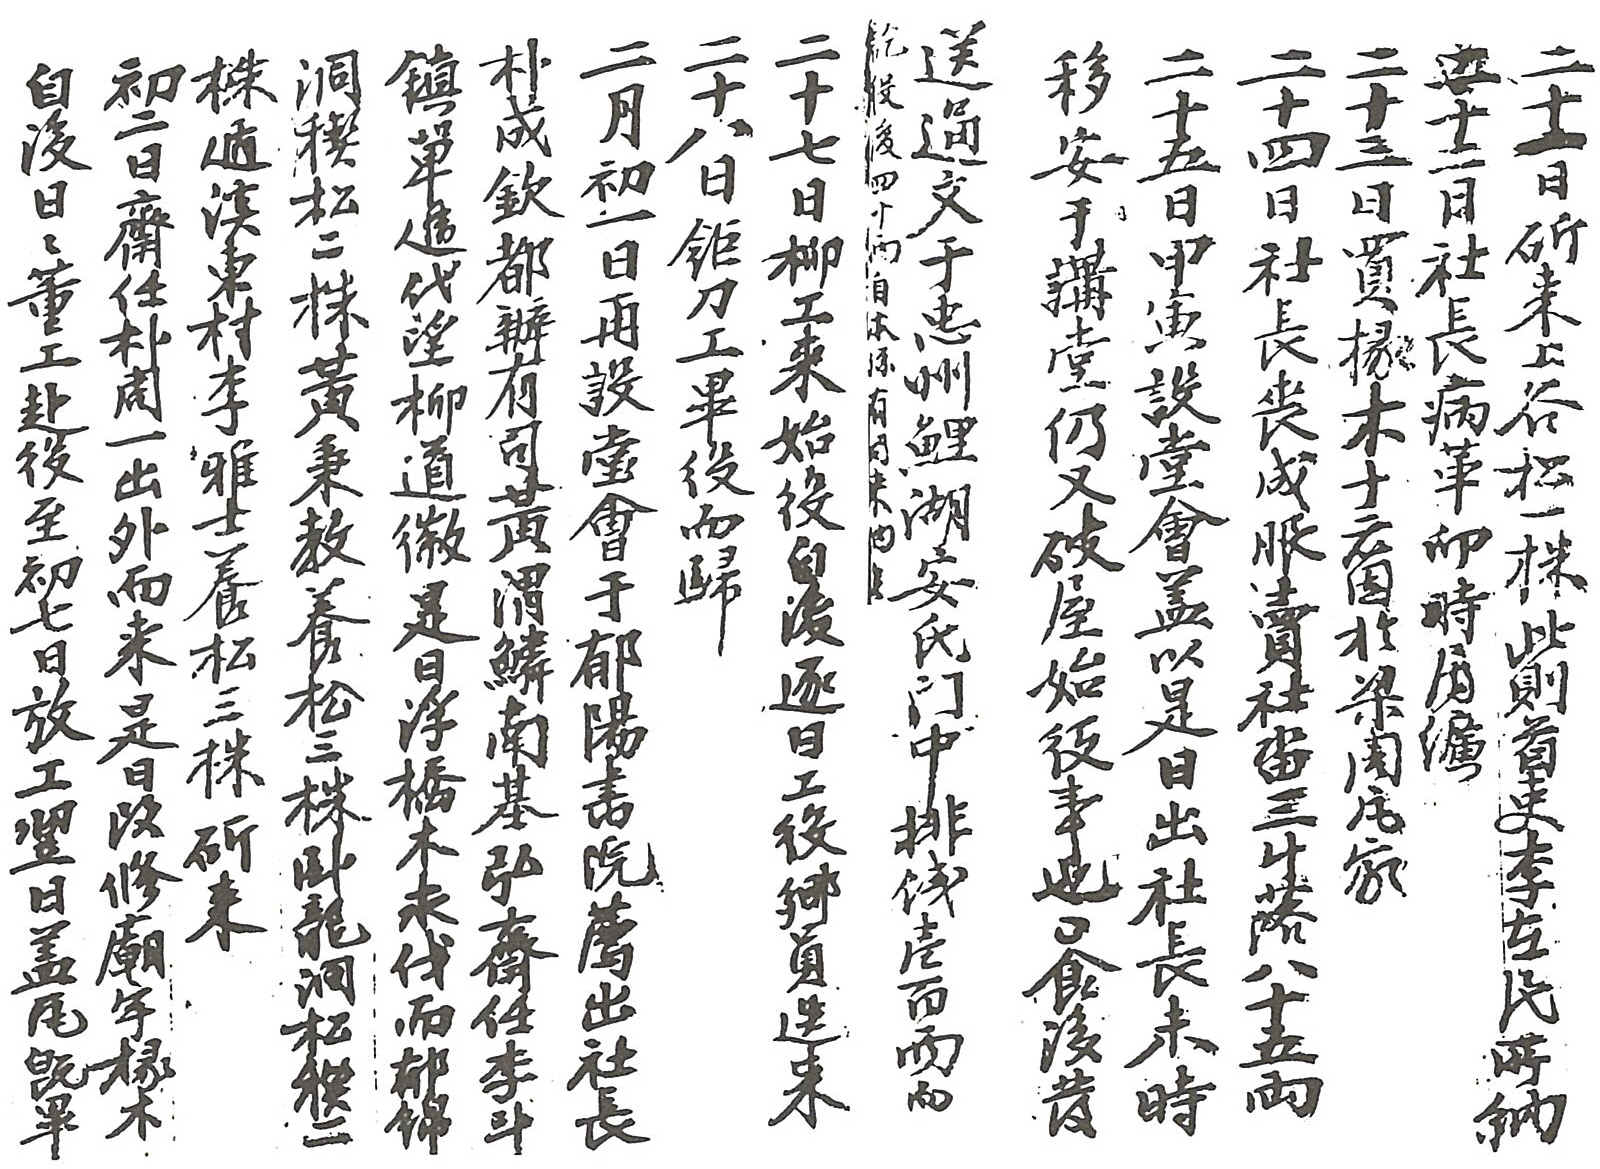 二十一日斫来上谷松一株此則首吏李左氏所納
二十二日社長病革卯時屬纊
二十三日買椽木十六箇於梁周氏家
二十四日社長喪成服賣社畓三斗落八十五兩
二十五日甲寅設堂會盖以是日出社長未時
移安于講堂仍又破屋始役事也食後發
送通文于忠州鯉湖安氏门中排錢壹百兩而
訖役後四十兩自本孫有司来
二十七日柳工来始役自後逐日工役鄉員迭来
二十八日鉅刀工畢役而歸
二月初一日再設堂會于郁陽書院薦出社長
朴成欽都辦有司黄渭鱗南基弘齋任李斗
鎮單進代望柳道徽是日浮橋木未伐而郁錦
洞稧松二株黃秉教養松三株臥龍洞松稧二
株遁溪東村李雅士養松三株斫来
初二日齋任朴周一出外而来是日改修廟宇椽木
自後日〻董工赴役至初七日放工翌日盖瓦旣畢